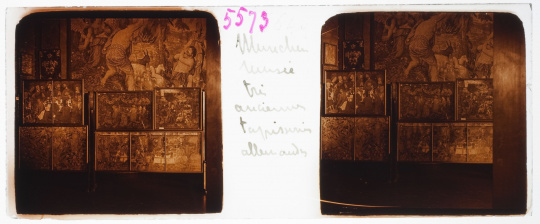 5573
Munich
musée
très
anciennes
tapisseries
allemandes